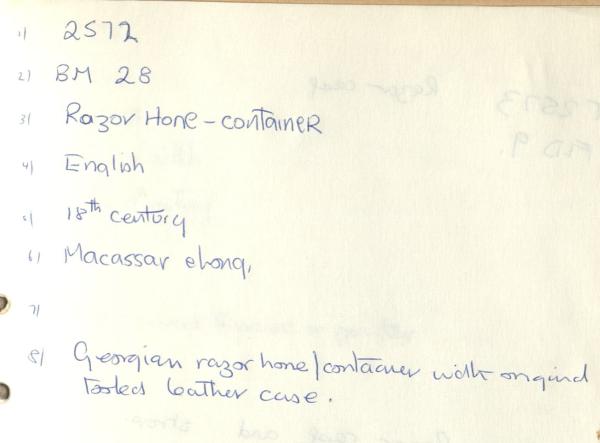 1) 2572
2) BM 28
3) Razor Hone - container
4) English
5) 18th century
6) Macassar ebony,
7)
8) Georgian razor hone/container with original
tooled leather case.